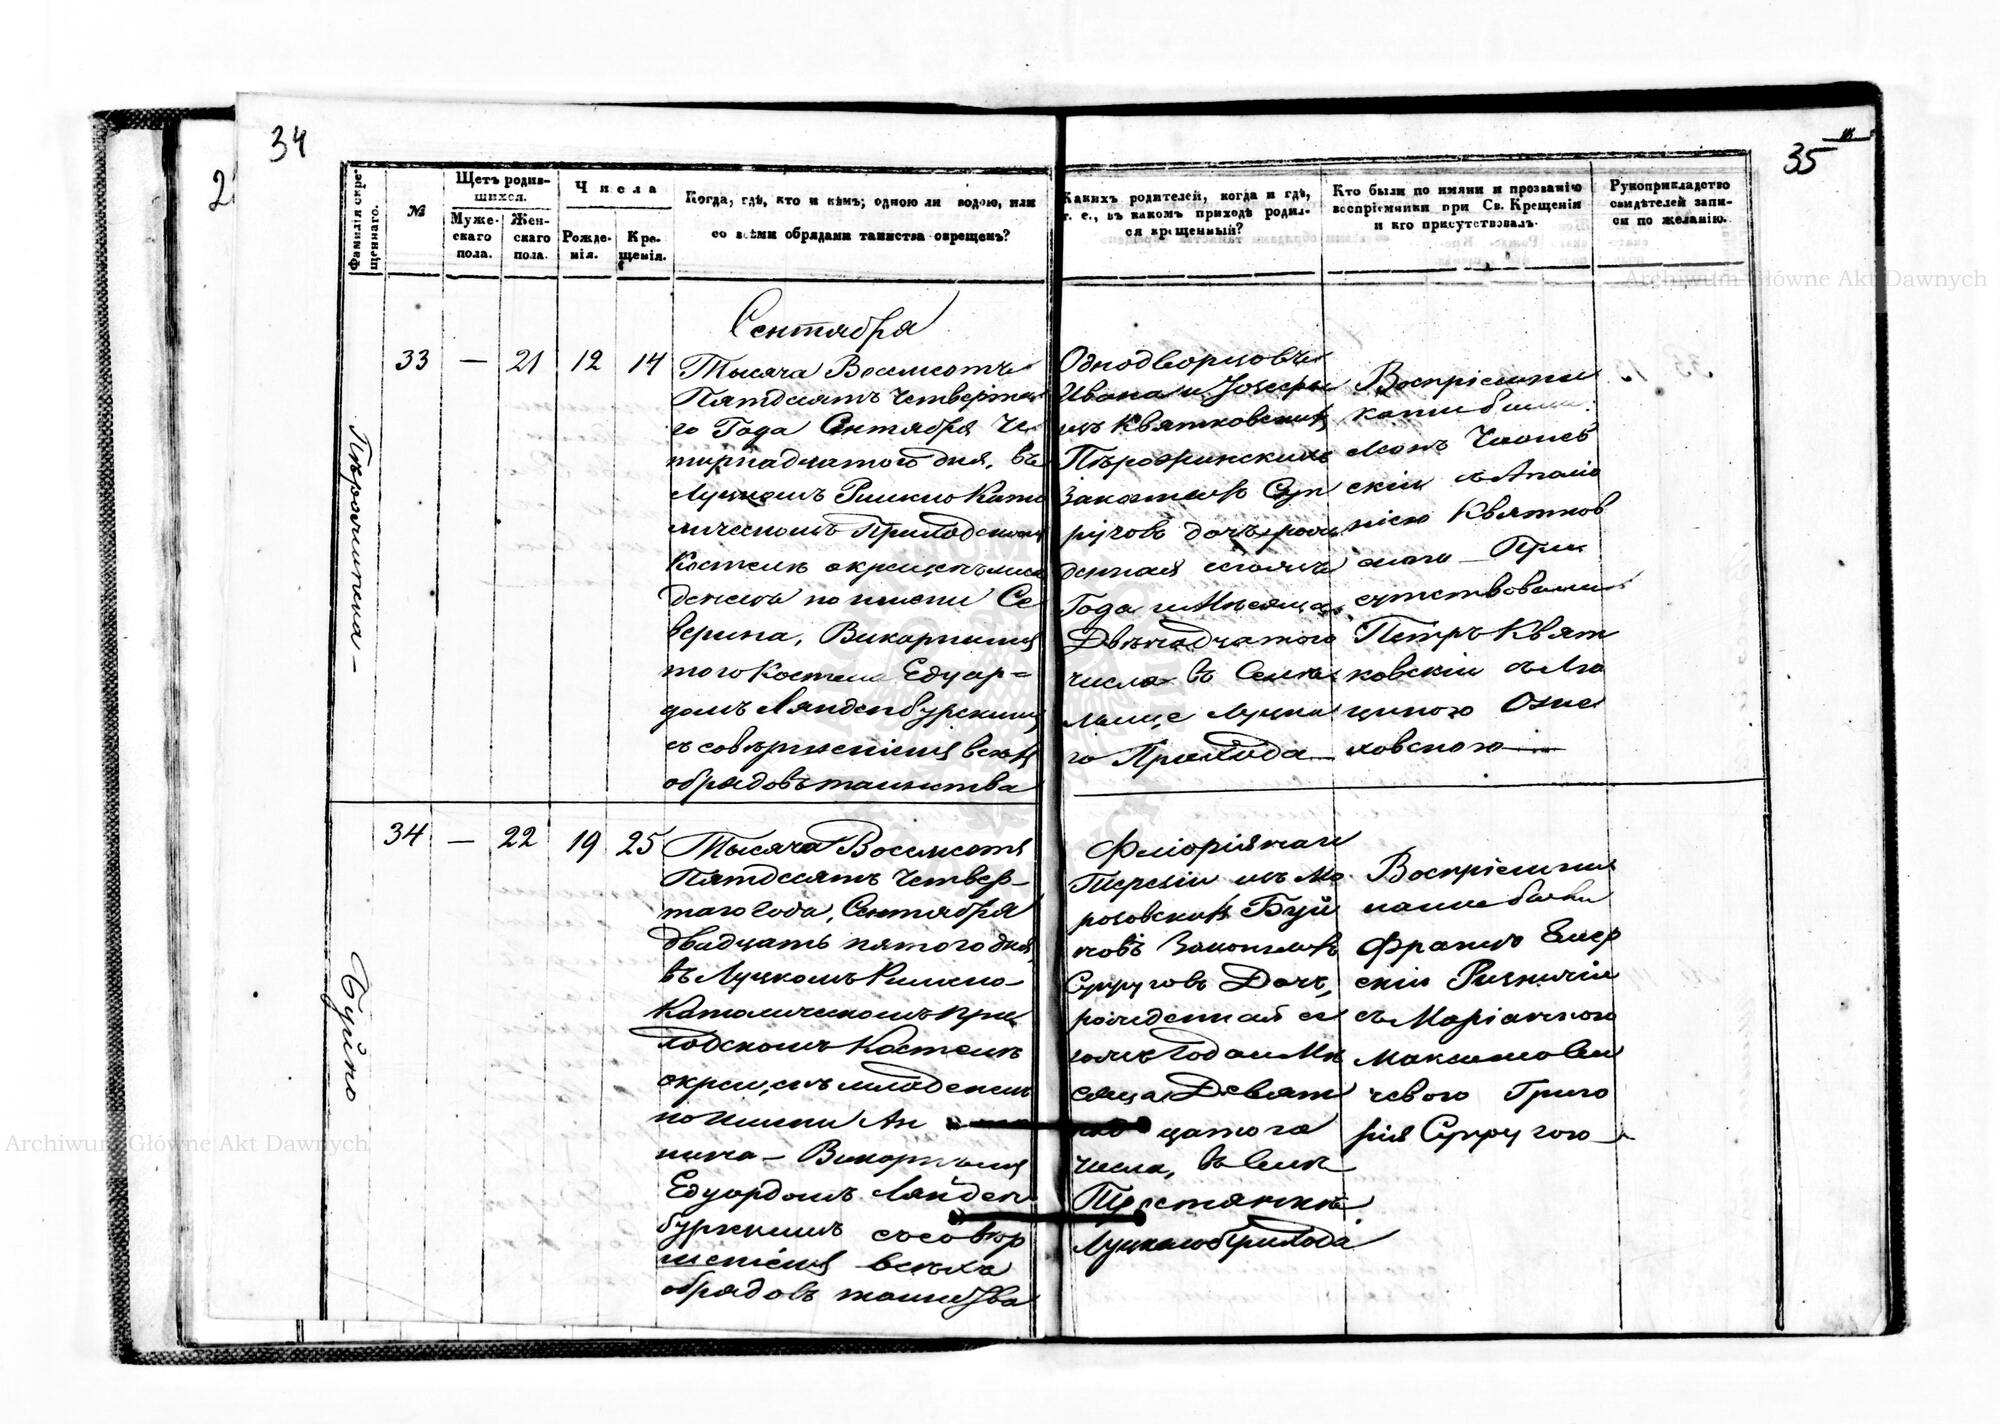 34
35
Фамилія скре-
щеннаго.
№
Щетъ родив-
шихся.
Муже-
скаго
пола.
Жен-
скаго
пола.
Числа
Рожде-
нія.
Кре-
щенія.
Когда, гдѣ, кто и кѣмъ; одною ли водою, или
со всѣми обрядами таинства окрещенъ?
Какихъ родителей, когда и гдѣ,
т. е., въ какомъ приходѣ родил-
ся крещенный?
Кто были по имяни и прозванію
воспріемники при Св. Крещеніи
и кто присутствовалъ.
Рукоприкладство
свидѣтелей запи-
си по желанію.
Archiwum Główne Akt Dawnych
Сентября
33 — 21 12 14
Тысяча Восемсотъ
Пятдесятъ Четвертa
го Года Сентября Че
тирнадцатого дня, въ
Луцкомъ Римско Като
лическомъ Приходскомъ
Костелѣ окрещенъ мла
денецъ по имени Се
верина, Викаріемъ
того Костела Едуар=
домъ Ляндсбурскимъ
съ совершеніемъ всѣхъ
обрядовъ таинства
Однодворцовъ
Ивана и Јозефы
изъ Квятковскихъ
Законныхъ Суп
руговъ дочь, рож
денная сегожъ
Года и Мѣсяца
Двѣнадцатого
числа въ Селѣ
Луцка
го Прихода
Воспріемни
ками были:
скій съ Аполо
ніею Квятков
скою — При
сутствовали
Петръ Квят
ковскій съ Лю
циною
ховскою —
34 — 22 19 25
Тысяча Восемсотъ
Пятдесятъ Четвер-
таго года, Сентября
двадцать пятого дня,
въ Луцкомъ Римско-
Католическомъ При
ходскомъ Костелѣ
окрещенъ младенецъ
по имени Ан
на — Викаріемъ
Едуардомъ Ляндс
бурскимъ съ совер
шеніемъ всѣхъ
обрядовъ таинства
Флоріяна и
Терезіи изъ Мо
розовскихъ Буй
новъ Законныхъ
Супруговъ Дочь,
рожденная се
гожъ Года и Мѣ
сяца Девят
надцатого
числа, въ Селѣ
Луцкаго Прихода
Воспріемни
ками были
Францъ
скій
съ Маріанною
Максимови
чевою Григо
рія Супругою
Буйно
Archiwum Główne Akt Dawnych